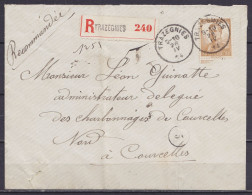 Recommandée
R TRAZEGNIES 240
TRAZEGNIES
TRAZEGNIES
Monsieur Léon Guinotte
administrateur délégué
des charbonnages de Courcelles
Nord
à Courcelles